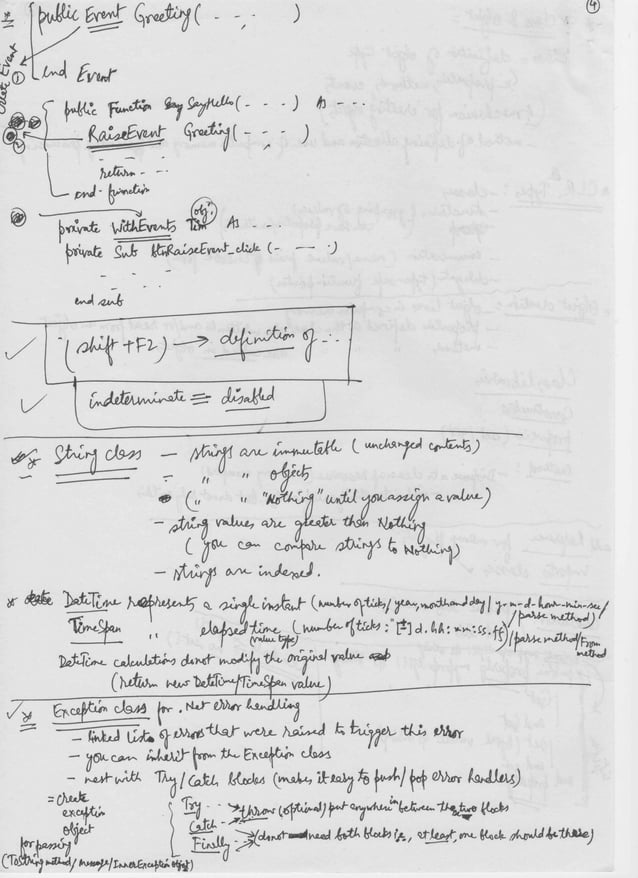 ④
* public Event Greeting(- - , - )
Create Event
①
end Event
public Function SayHello(- - -) As - - -
② RaiseEvent Greeting(- - -)
- - -
return - - -
end-function
obj.
private WithEvents Tim As - - .
private Sub btnRaiseEvent_click(- - - )
- - -
- - -
end sub
(shift + F2) → definition of - . .
✓
indeterminate = disabled
✓
* String class — strings are immutable (unchanged contents)
— " " objects
(" " "Nothing" until you assign a value)
— string values are greater than Nothing
( you can compare strings to Nothing)
— strings are indexed.
* DateTime represents a single instant (number of ticks/ year, month and day/ y-m-d-hour-min-sec/
/parse method)
TimeSpan " elapsed time (number of ticks: [±] d.hh:mm:ss.ff)/parse method/From
(value type) method
DateTime calculations donot modify the original value
(return new DateTime/TimeSpan value)
✓ * Exception class for .Net error handling
— linked list of errors that were raised to trigger this error
— you can inherit from the Exception class
— nest with Try/Catch blocks (makes it easy to push/pop error handlers)
= Create
exception
object
for passing
(ToString method/message/InnerException object)
Try - -
→ throw (optional) put anywhere in between the two blocks
Catch - -
Finally - - → (donot need both blocks i.e., at least, one block should be there)